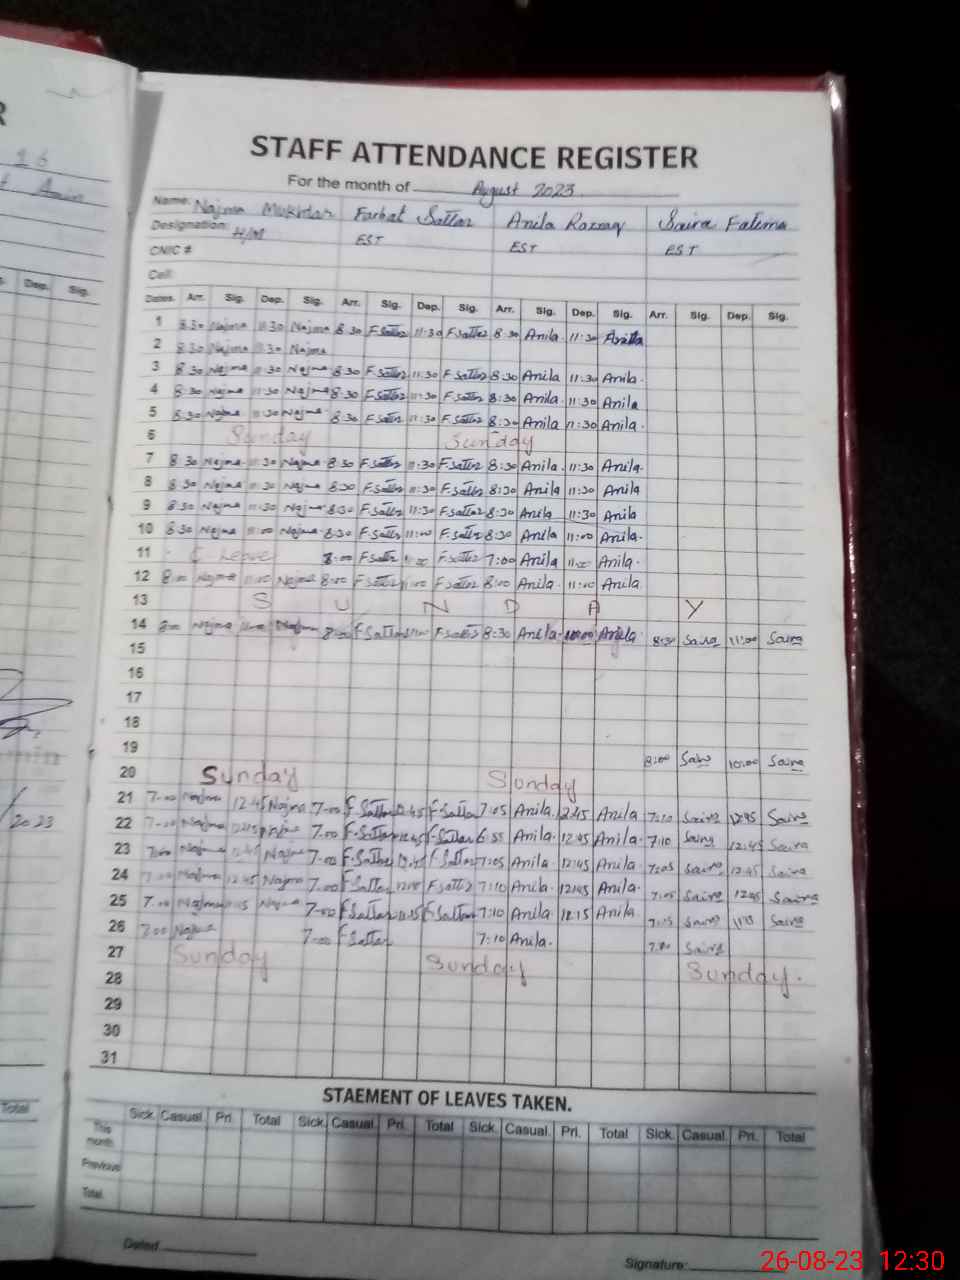 STAFF ATTENDANCE REGISTER
For the month of August 2023
Name: Najma Mukhtar Farhat Sattar Anila Razzaq Saira Fatima
Designation: H/M EST EST EST
CNIC #
Cell:
Dates. Arr. Sig. Dep. Sig. Arr. Sig. Dep. Sig. Arr. Sig. Dep. Sig. Arr. Sig. Dep. Sig.
1 8:30 Najma 11:30 Najma 8:30 F.Sattar 11:30 F.Sattar 8:30 Anila 11:30 Anila
2 8:30 Najma 11:30 Najma
3 8:30 Najma 11:30 Najma 8:30 F.Sattar 11:30 F.Sattar 8:30 Anila 11:30 Anila
4 8:30 Najma 11:30 Najma 8:30 F.Sattar 11:30 F.Sattar 8:30 Anila 11:30 Anila
5 8:30 Najma 11:30 Najma 8:30 F.Sattar 11:30 F.Sattar 8:30 Anila 11:30 Anila
6 Sunday Sunday
7 8:30 Najma 11:30 Najma 8:30 F.Sattar 11:30 F.Sattar 8:30 Anila 11:30 Anila
8 8:30 Najma 11:30 Najma 8:30 F.Sattar 11:30 F.Sattar 8:30 Anila 11:30 Anila
9 8:30 Najma 11:30 Najma 8:30 F.Sattar 11:30 F.Sattar 8:30 Anila 11:30 Anila
10 8:30 Najma 11:00 Najma 8:30 F.Sattar 11:00 F.Sattar 8:30 Anila 11:00 Anila
11 C Leave 8:00 F.Sattar F.Sattar 7:00 Anila Anila
12 8:00 Najma 11:00 Najma 8:00 F.Sattar 11:00 F.Sattar 8:00 Anila 11:00 Anila
13 S U N D A Y
14 8:00 Najma Najma 8:00 F.Sattar 11:00 F.Sattar 8:30 Anila Anila 8:30 Saira 11:00 Saira
15
16
17
18
19 8:00 Saira 10:00 Saira
20 Sunday Sunday
21 7:00 Najma 12:45 Najma 7:00 F.Sattar 12:45 F.Sattar 7:05 Anila 12:45 Anila 7:10 Saira 12:45 Saira
22 7:00 Najma 12:45 Najma 7:00 F.Sattar 12:45 F.Sattar 6:55 Anila 12:45 Anila 7:10 Saira 12:45 Saira
23 7:00 Najma 12:45 Najma 7:00 F.Sattar 12:45 F.Sattar 7:05 Anila 12:45 Anila 7:05 Saira 12:45 Saira
24 7:00 Najma 12:45 Najma 7:00 F.Sattar F.Sattar 7:10 Anila 12:45 Anila 7:05 Saira 12:45 Saira
25 7:00 Najma Najma 7:00 F.Sattar F.Sattar 7:10 Anila 12:15 Anila 7:15 Saira Saira
26 7:00 Najma 7:00 F.Sattar 7:10 Anila Saira
27 Sunday Sunday Sunday
28
29
30
31
STAEMENT OF LEAVES TAKEN.
Sick. Casual. Pri. Total Sick. Casual. Pri. Total Sick. Casual. Pri. Total Sick. Casual. Pri. Total
This month
Previous
Total
Dated
Signature:
26-08-23 12:30